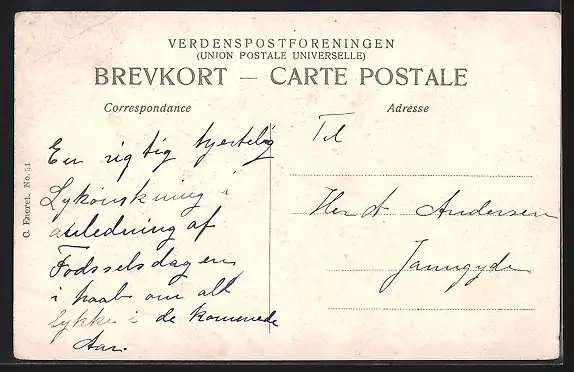 VERDENSPOSTFORENINGEN
(UNION POSTALE UNIVERSELLE)
BREVKORT — CARTE POSTALE
Correspondance
Adresse
En rigtig hjertelig
Lykønskning i
anledning af
Fødsselsdagen
i haab om alt
lykke i de kommende
Aar.
Til
Herr A. Andersen
C. Eneret. No. 51